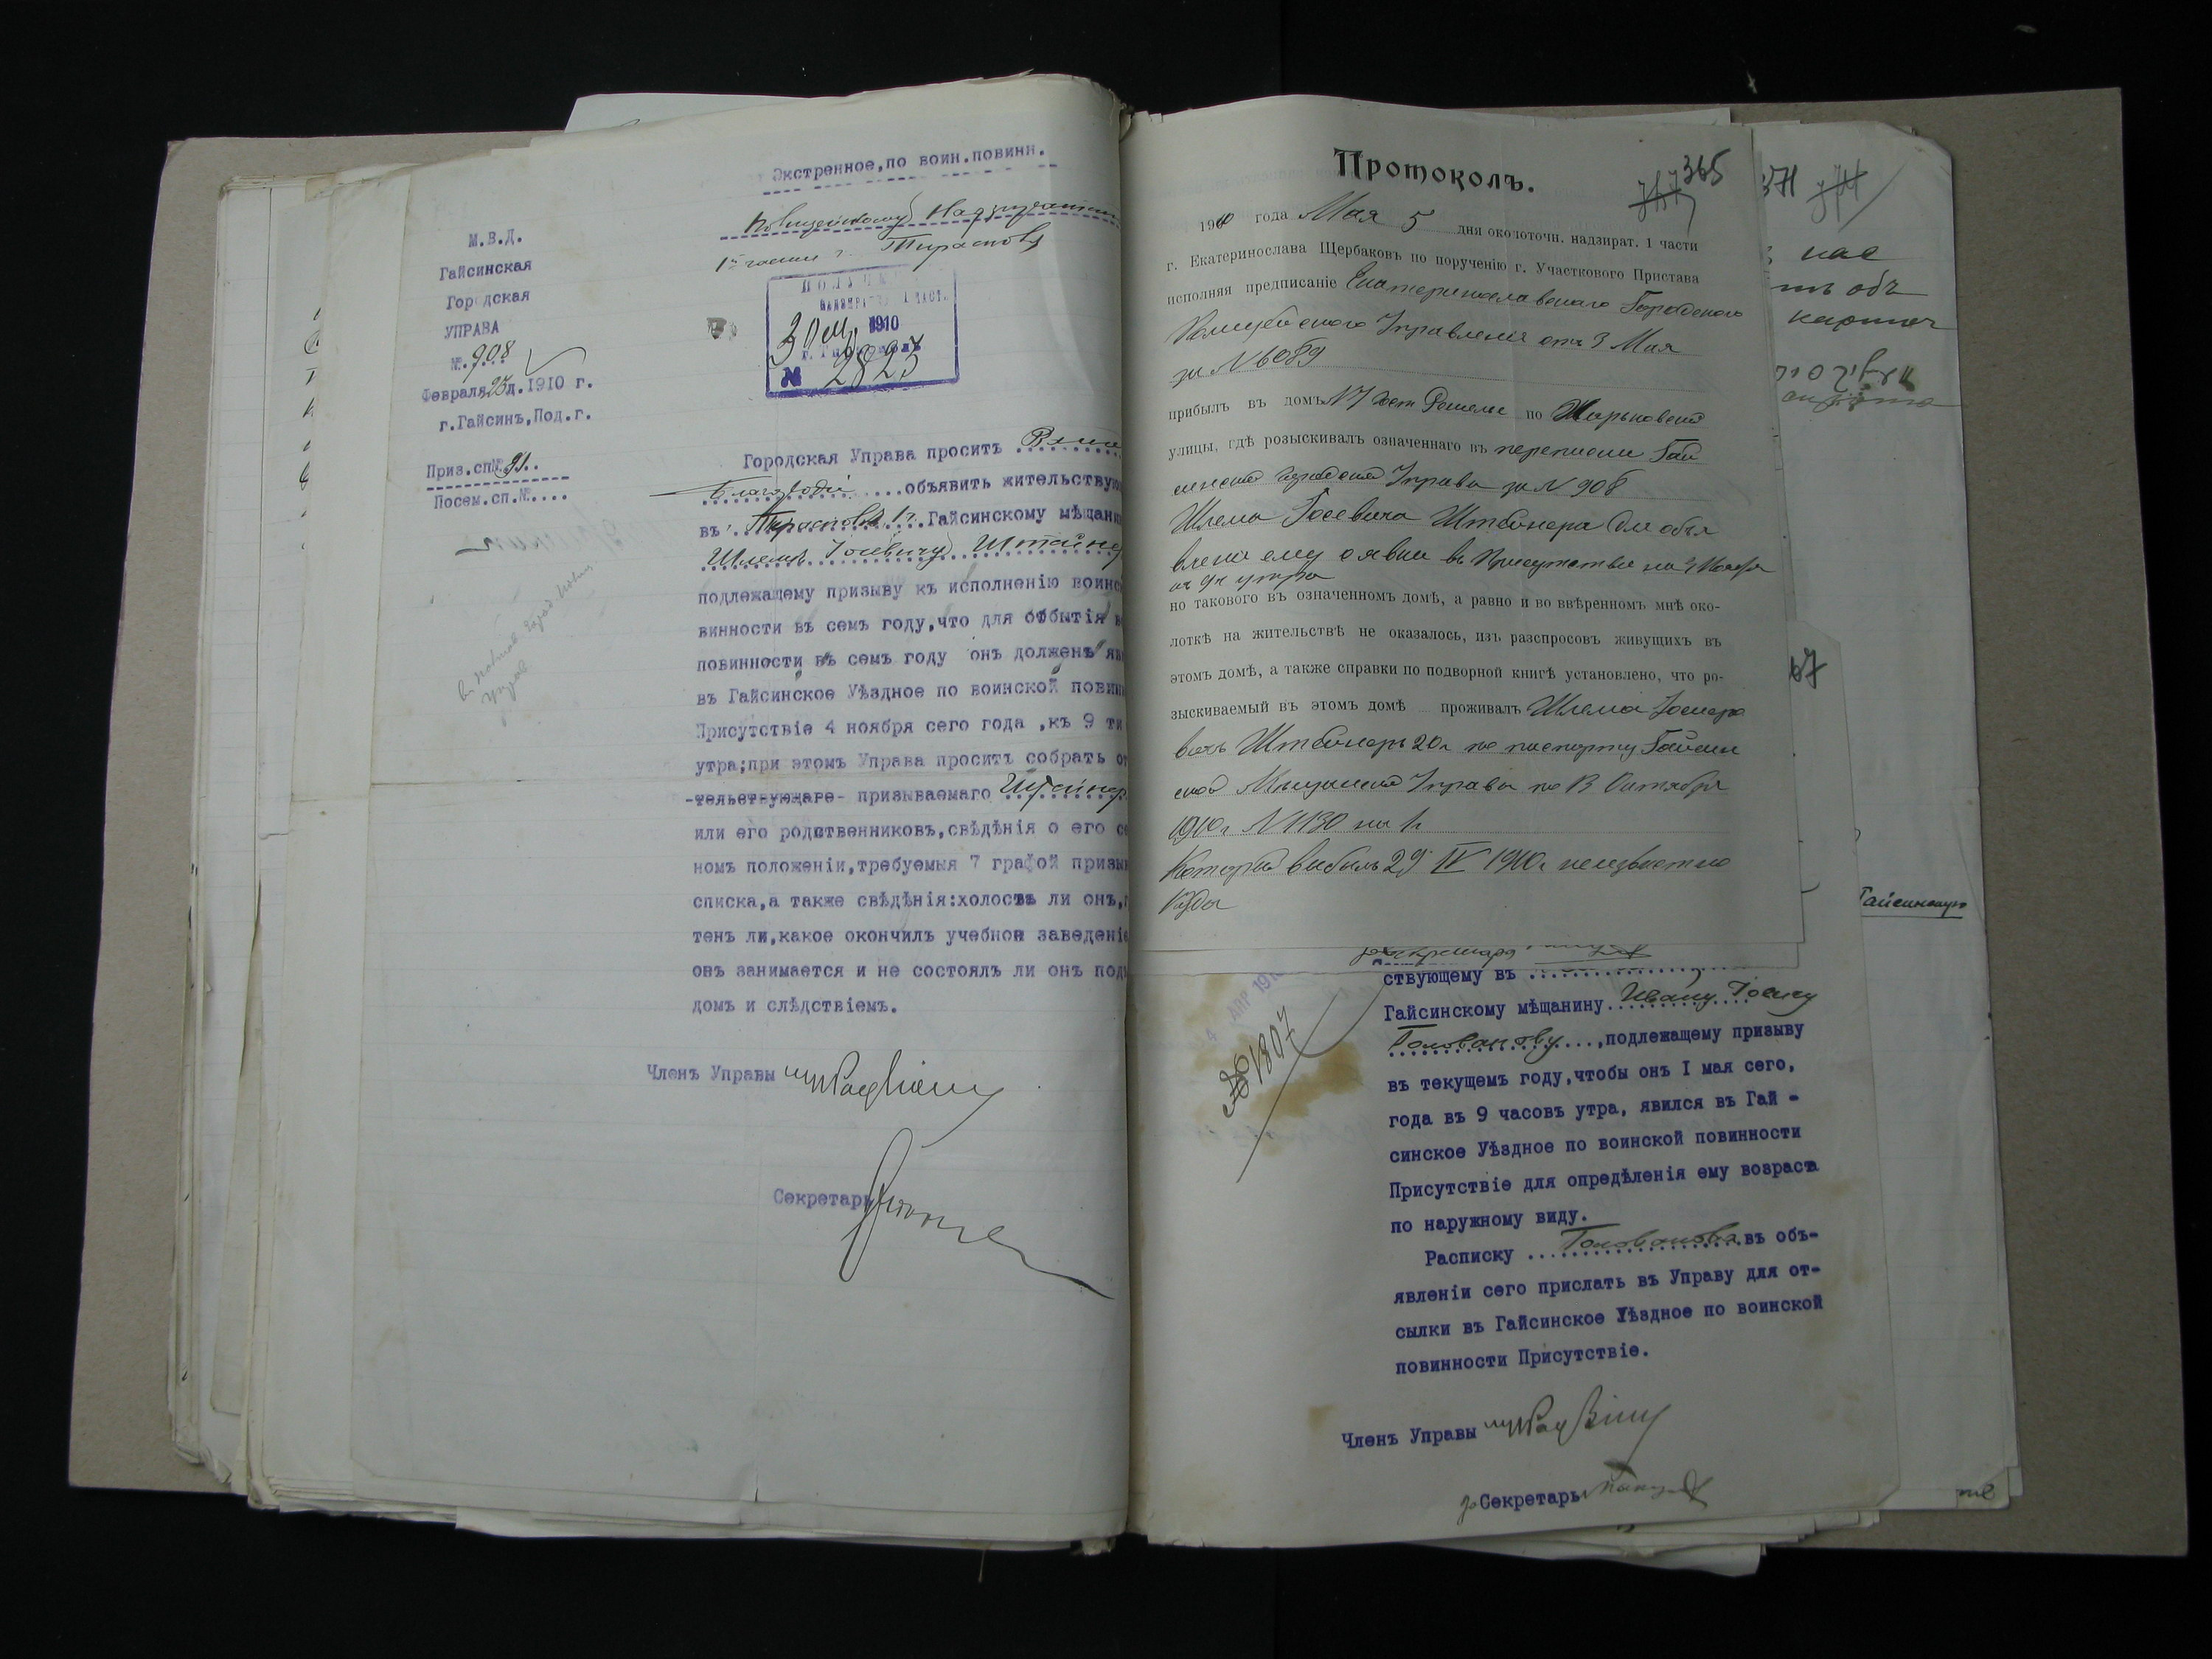 Экстренное, по воин. повинн.
Полицейскому Надзирателю
1й части г. Тирасполя
М.В.Д.
Гайсинская
Городская
УПРАВА
№. 908
Февраля 23 д. 1910 г.
г. Гайсинъ, Под. г.
Приз. сп.№ 91..
Посем. сп. №....
1910
№ 2825
Городская Управа проситъ
Благородіе ....объявить жительствую
въ Тирасполѣ Гайсинскому мѣщани
Шлемѣ Іосевичу Штайнер
подлежащему призыву къ исполненію воинс
винности въ семъ году, что для отбытія в
повинности въ семъ году онъ долженъ яв
въ Гайсинское Уѣздное по воинской повин
Присутствіе 4 ноября сего года, къ 9 ти
утра; при этомъ Управа проситъ собрать от
-тельствующаго- призываемаго Штайнер
или его родственниковъ, свѣдѣнія о его се
номъ положеніи, требуемыя 7 графой призы
списка, а также свѣдѣнія: холостъ ли онъ, г
тенъ ли, какое окончилъ учебное заведеніе
онъ занимается и не состоялъ ли онъ подъ
домъ и слѣдствіемъ.
Членъ Управы
Секретарь
Протоколъ.
365
1910 года Мая 5 дня околоточн. надзират. 1 части
г. Екатеринослава Щербаковъ по порученію г. Участкового Пристава
исполняя предписаніе Екатеринославскаго Городского
Полицейского Управленія отъ 3 Мая
за №6089
прибылъ въ домъ №7 по Харьковской
улицы, гдѣ розыскивалъ означеннаго въ переписки Гай
синской городской Управы за № 908
Шлема Іосевича Штейнера для объя
вленія ему о явки въ Присутствіе на 4 Ноября
къ 9ч утра
но такового въ означенномъ домѣ, а равно и во ввѣренномъ мнѣ око-
лоткѣ на жительствѣ не оказалось, изъ разспросовъ живущихъ въ
этомъ домѣ, а также справки по подворной книгѣ установлено, что ро-
зыскиваемый въ этомъ домѣ проживалъ Шлема
вичъ Штейнеръ 20 л по паспорту Гайсин
ской Мещанской Управы по 13 Октября
1910 г №1130 на 1 г
Который выбылъ 29 IV 1910 г неизвестно
куда
ствующему въ
Гайсинскому мѣщанину Ивану
Голованову...., подлежащему призыву
въ текущемъ году, чтобы онъ I мая сего,
года въ 9 часовъ утра, явился въ Гай -
синское Уѣздное по воинской повинности
Присутствіе для опредѣленія ему возраста
по наружному виду.
Расписку ...Голованова въ объ-
явленіи сего прислать въ Управу для от-
сылки въ Гайсинское Уѣздное по воинской
повинности Присутствіе.
Членъ Управы
Секретарь
4 АПР 191
№ 1807
371
67
Гайсинскую